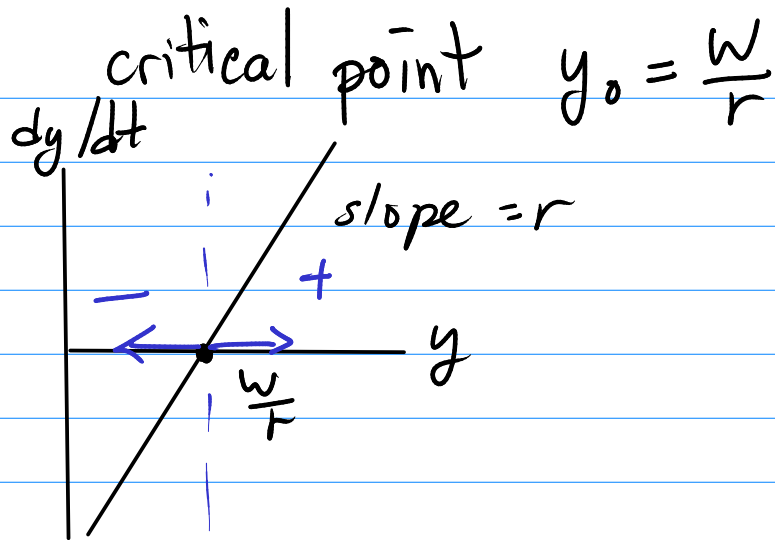 critical point y₀ = w/r
dy/dt
slope = r
− +
y
w/r